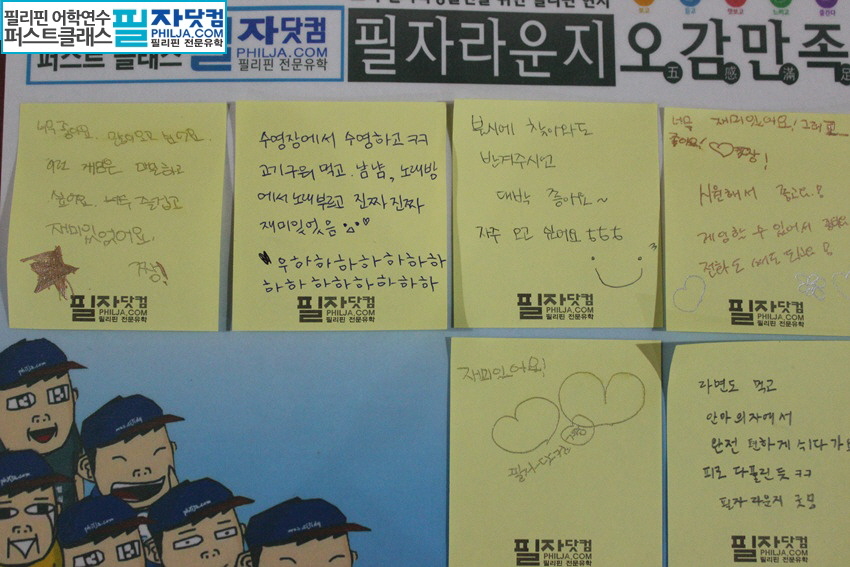 필리핀 어학연수
퍼스트클래스
필자닷컴
PHILJA.COM
필리핀 전문유학
퍼스트 클래스
필자닷컴
PHILJA.COM
필리핀 전문유학
필자라운지
오감만족
五 感 滿 足
너무 좋아요.
싶어요. 너무 즐겁고
재미있었어요.
짱!
필자닷컴
PHILJA.COM
필리핀 전문유학
수영장에서 수영하고 ㅋㅋ
고기구워 먹고. 냠냠, 노래방
에서 노래부르고 진짜진짜
재미있었음
♥ 우하하하하하하하하
하하하하하하하하하
필자닷컴
PHILJA.COM
필리핀 전문유학
불시에 찾아와도
반겨주시고
대박 좋아요~
자주 오고 싶어요 ㅎㅎㅎ
필자닷컴
PHILJA.COM
필리핀 전문유학
너무 재미있어요! 그리고
좋아요! ♡짱!
시원해서 좋고요!
게임할 수 있어서 좋아요
전화도 써도 되고요!
필자닷컴
PHILJA.COM
필리핀 전문유학
재미있어요!
필자닷컴
필자닷컴
PHILJA.COM
필리핀 전문유학
라면도 먹고
안마의자에서
완전 편하게 쉬다가요
피로 다풀린 듯 ㅋㅋ
필자라운지 굿뜨
필자닷컴
PHILJA.COM
필리핀 전문유학
philja.com